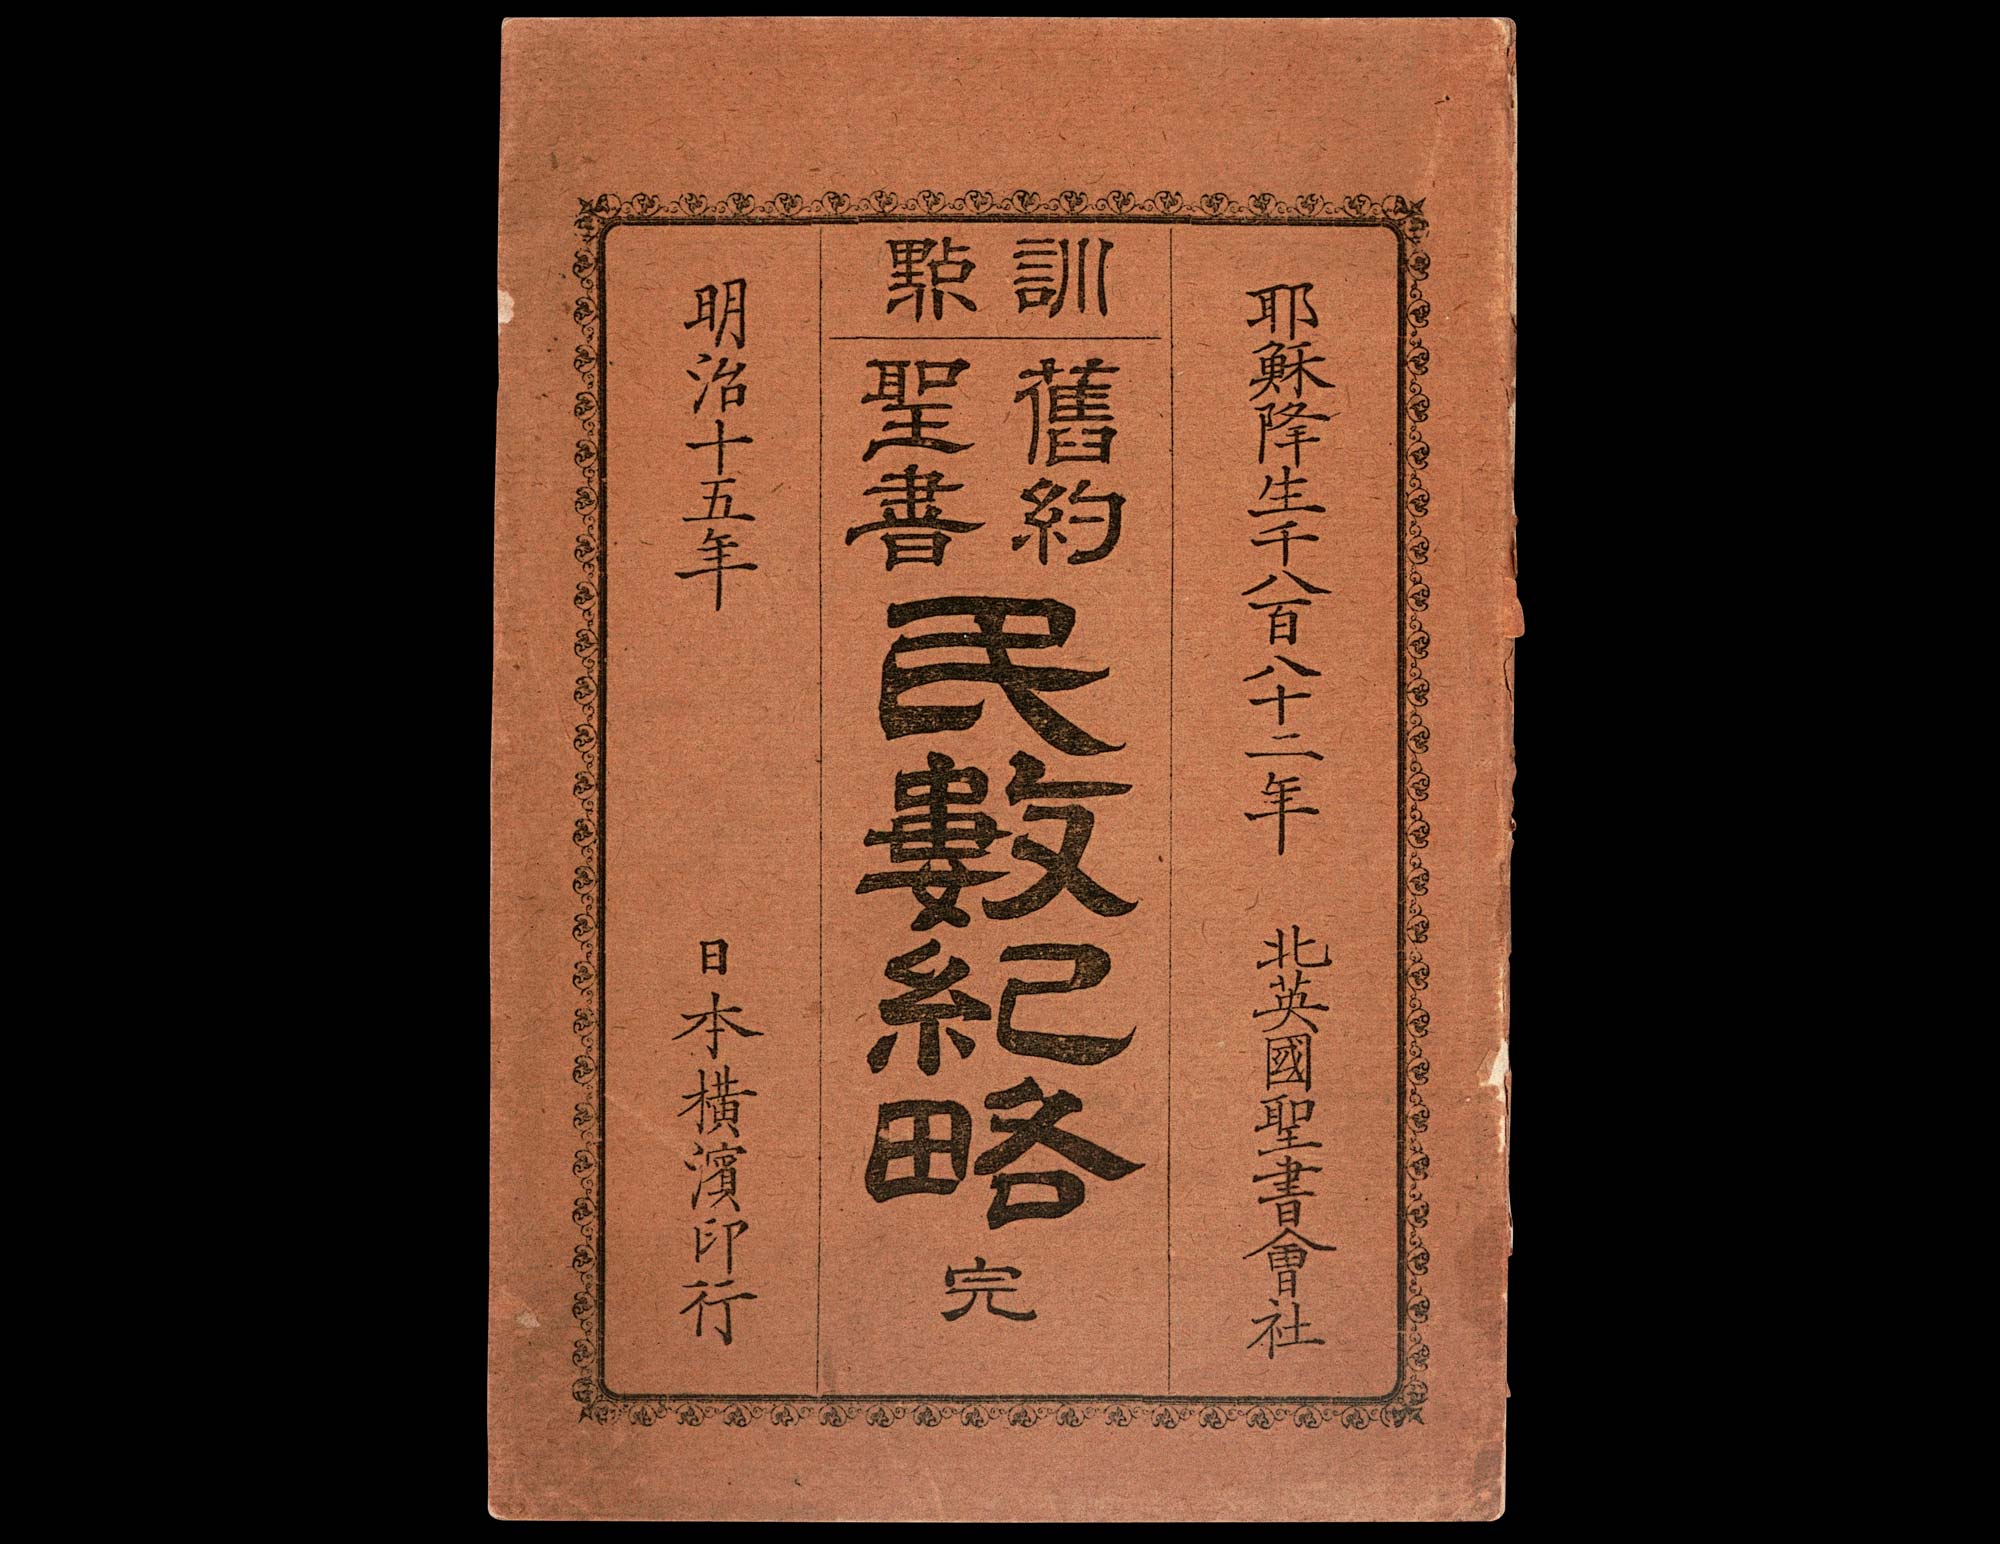 耶穌降生千八百八十二年 北英國聖書會社
訓點
舊約
聖書
民數紀略 完
明治十五年 日本橫濱印行